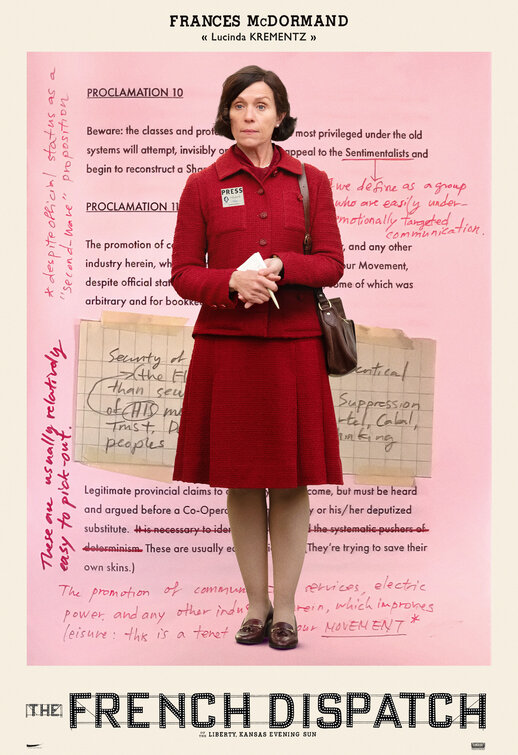 FRANCES McDORMAND
« Lucinda KREMENTZ »
* despite official status as a
"second-wave" proposition
PROCLAMATION 10
Beware: the classes and prot most privileged under the old
systems will attempt, invisibly o appeal to the Sentimentalists and
begin to reconstruct a Sha
we define as a group
who are easily under-
emotionally targeted
communication.
PRESS
PROCLAMATION 11
The promotion of c y, and any other
industry herein, wh our Movement,
despite official stat ome of which was
arbitrary and for bookke
Security of entical
→ the Fl
than secu Suppression
of (HIS) m rtel, Cabal,
Trust, D inking
peoples
These are usually relatively
easy to pick-out.
Legitimate provincial claims to come, but must be heard
and argued before a Co-Opera y or his/her deputized
substitute. It is necessary to iden d the systematic pushers of
determinism. These are usually ea (They're trying to save their
own skins.)
The promotion of commun services, electric
power, and any other indus erein, which improves
leisure: this is a tenet our MOVEMENT *
THE FRENCH DISPATCH
OF THE LIBERTY, KANSAS EVENING SUN